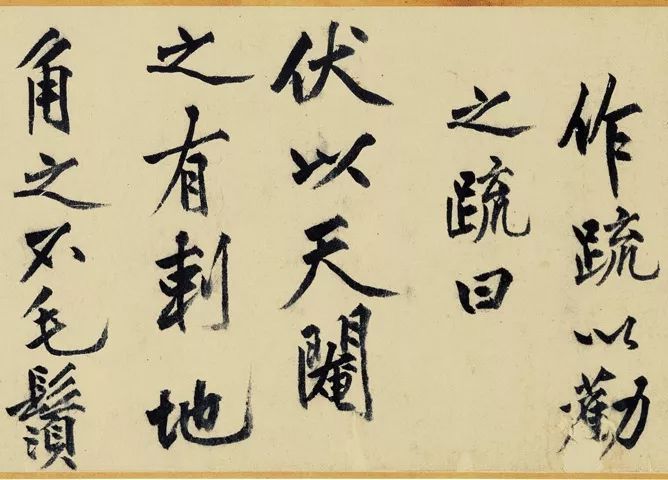 作疏以勸
之疏曰
伏以天閹
之有刺地
角之不毛鬚